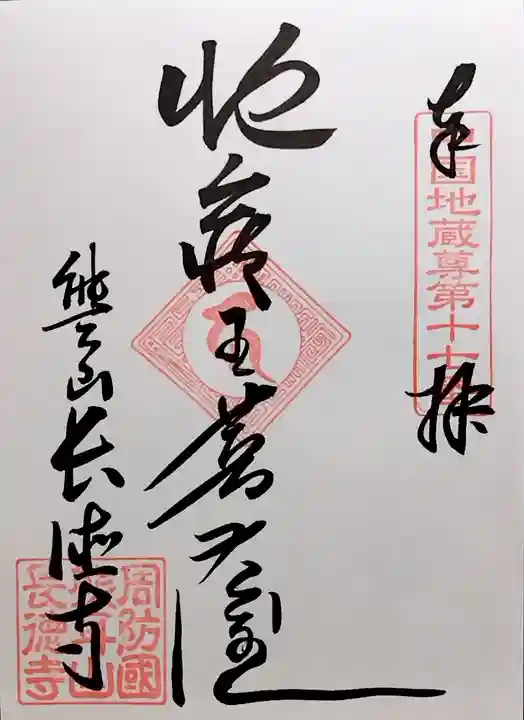 奉拝
中国地蔵尊第十七番
地蔵王菩薩
熊耳山長徳寺
周防國
熊耳山
長德寺